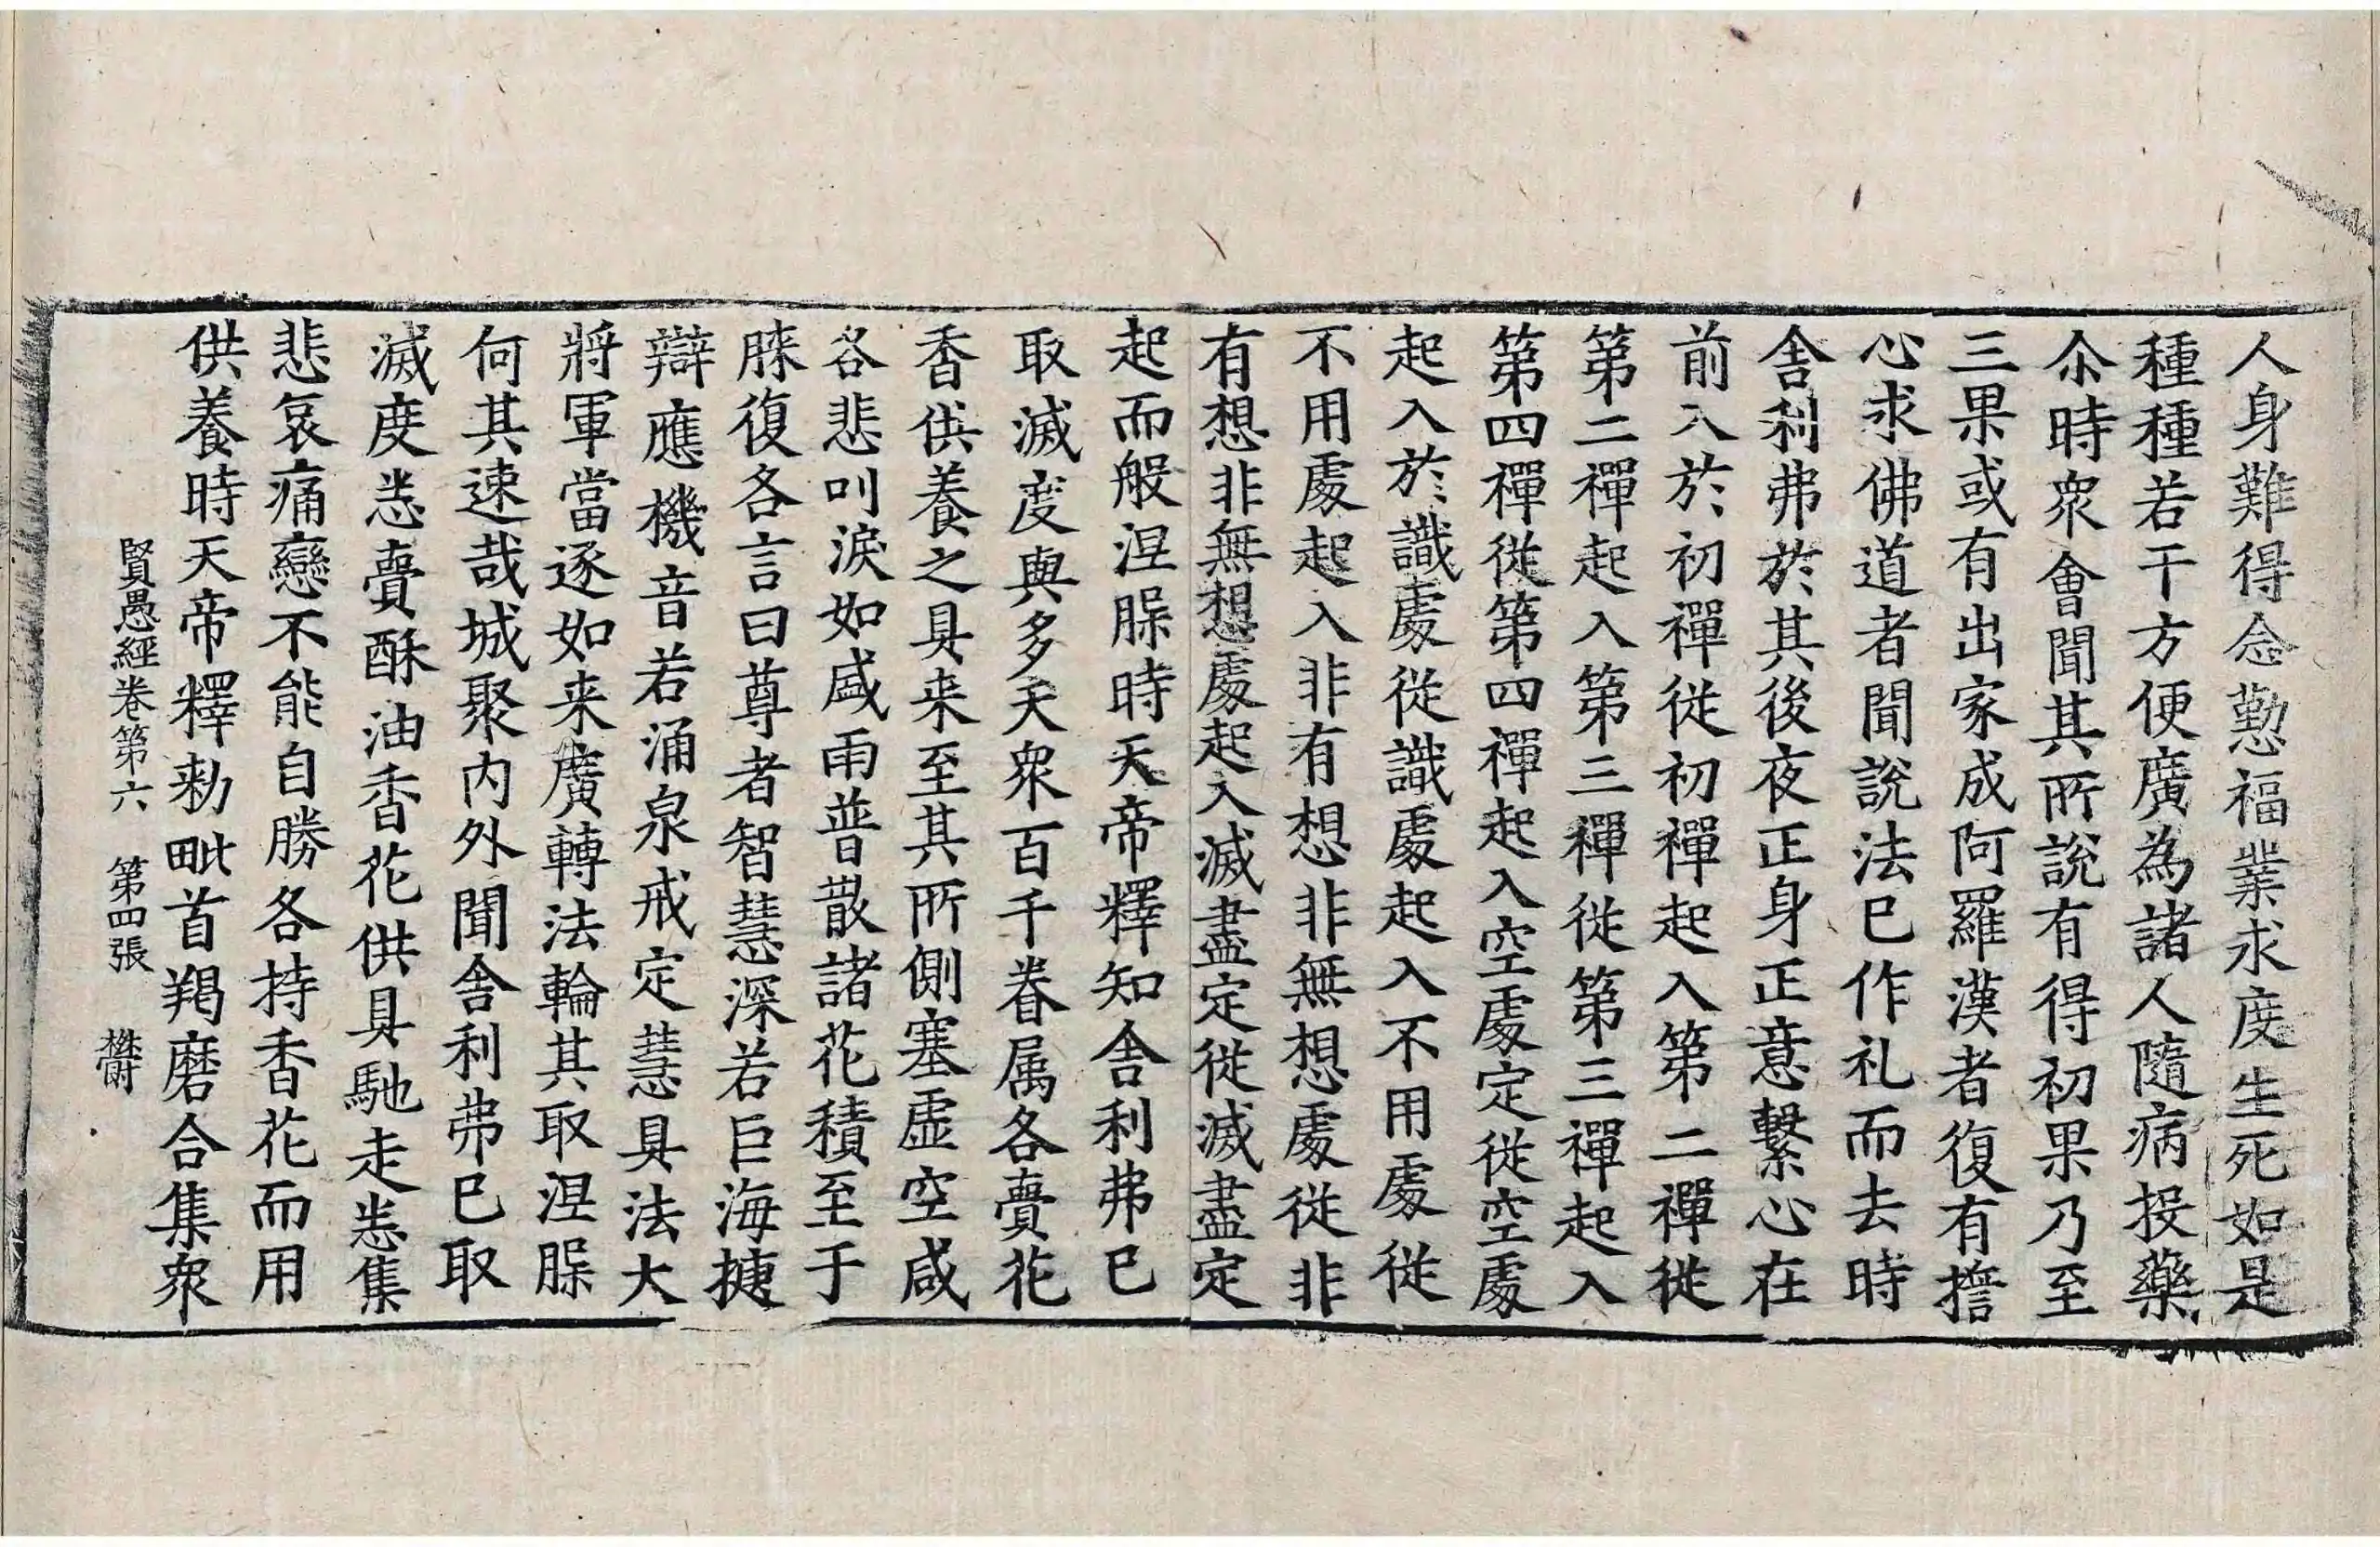 人身難得念懃福業求度生死如是
種種若干方便廣為諸人隨病投藥
尒時衆會聞其所說有得初果乃至
三果或有出家成阿羅漢者復有擔
心求佛道者聞說法已作礼而去時
舍利弗於其後夜正身正意繫心在
前入於初禪從初禪起入第二禪從
第二禪起入第三禪從第三禪起入
第四禪從第四禪起入空處定從空處
起入於識處從識處起入不用處從
不用處起入非有想非無想處從非
有想非無想處起入滅盡定從滅盡定
起而般涅槃時天帝釋知舍利弗已
取滅度與多天衆百千眷属各賷花
香供養之具来至其所側塞虛空咸
各悲叫淚如盛雨普散諸花積至于
膝復各言曰尊者智慧深若巨海捷
辯應機音若涌泉戒定慧具法大
將軍當逐如来廣轉法輪其取涅槃
何其速哉城聚内外聞舍利弗已取
滅度悉賷酥油香花供具馳走悉集
悲哀痛戀不能自勝各持香花而用
供養時天帝釋勑毗首羯磨合集衆
賢愚經卷第六 第四張